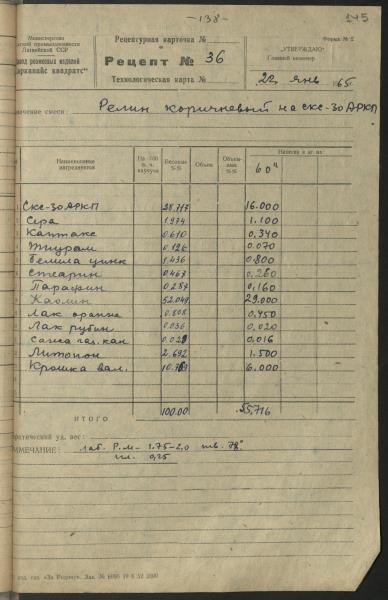 -138-
145
Министерство
промышленности
Латвийской ССР
завод резиновых изделий
"квадратс"
Рецептурная карточка №
Рецепт № 36
Технологическая карта №
Форма № 2
„УТВЕРЖДАЮ"
Главный инженер
22 янв 1965
смеси: Релин коричневый на скс-30 АРКП
Наименование ингредиентов
На 100 в. ч. каучука
Весовые %%
Объем
Объемные %%
Навеска в кг на:
60"
Скс-30АРКП 28.717 16.000
Сера 1.974 1.100
Каптакс 0.610 0.340
Тиурам 0.126 0.070
Белила цинк 1.436 0.800
Стеарин 0.467 0.260
Парафин 0.287 0.160
Каолин 52.049 29.000
Лак оранже 0.808 0.450
Лак рубин 0.036 0.020
Сажа газ. кан 0.029 0.016
Литопон 2.692 1.500
Крошка вал. 10.769 6.000
ИТОГО 100.00 55,716
уд. вес:
ПРИМЕЧАНИЕ: лаб. Р.М- 1.75-2,0 тв. 78°
пл. 0,25